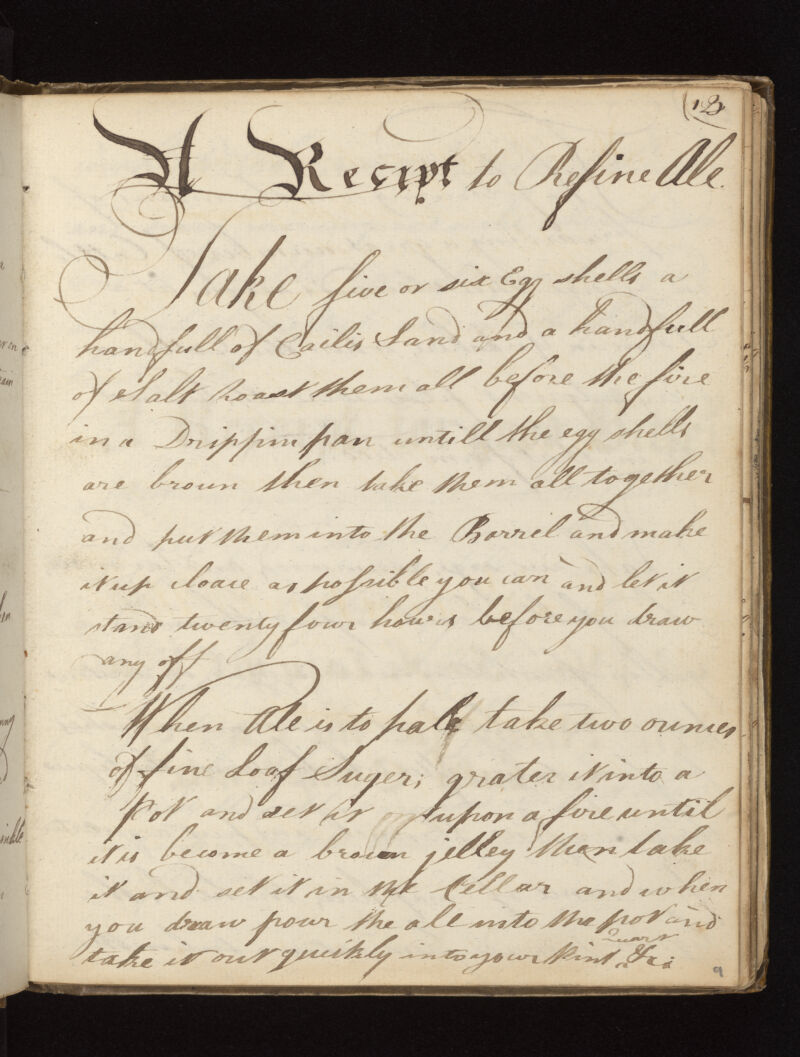 (12)
A Recipt to Refine Ale.
Take five or six Egg shells a
handfull of Callis Sand and a handfull
of Salt roast them all before the fire
in a Drippin pan untill the egg shells
are broun then take them all together
and put them into the Barril and make
it up cloace as possible you can and let it
stand twenty four hours before you draw
any off
When Ale is to pale take two ounces
of fine Loaf Suger; grater it into a
Pot and set it upon a fire until
it is become a broun jelley then take
it and set it in the Cellar and when
you draw pour the ale into the pot and
take it out quickly into your Pint Quart &c:
9